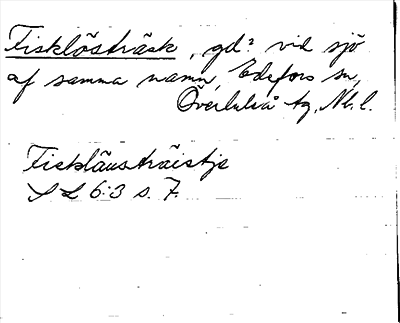 Fisklösträsk, gd? vid sjö
af samma namn, Edefors sn,
Överluleå tg, Nb. l.
Fiskläusträistje
SL 6:3 s. 7.